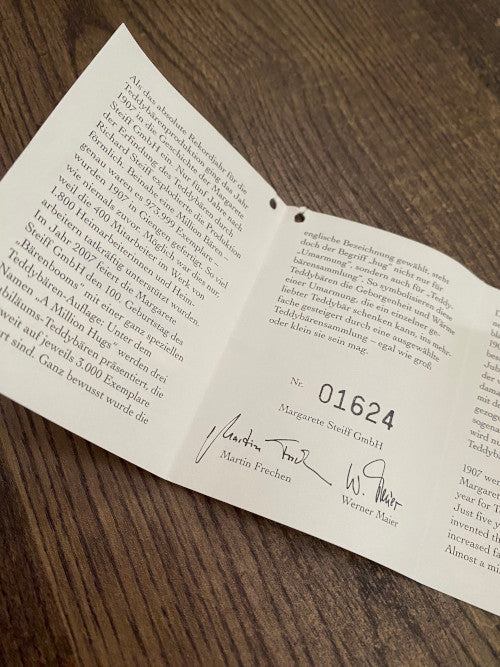 Als das absolute Rekordjahr für die
Teddybärenproduktion ging das Jahr
1907 in die Geschichte der Margarete
Steiff GmbH ein. Nur fünf Jahre nach
der Erfindung des Teddybären durch
Richard Steiff explodierte die Produktion
förmlich. Beinahe eine Million Bären –
genau waren es 973.999 Exemplare –
wurden 1907 in Giengen gefertigt. So viel
wie niemals zuvor. Möglich war dies nur,
weil die 400 Mitarbeiter im Werk von
1.800 Heimarbeiterinnen und Heim-
arbeitern tatkräftig unterstützt wurden.
Im Jahr 2007 feiert die Margarete
Steiff GmbH den 100. Geburtstag des
„Bärenbooms“ mit einer ganz speziellen
Teddybären-Auflage: Unter dem
Namen „A Million Hugs“ werden drei
Jubiläums-Teddybären präsentiert, die
weit auf jeweils 3.000 Exemplare
rt sind. Ganz bewusst wurde die
englische Bezeichnung gewählt, steht
doch der Begriff „hug“ nicht nur für
„Umarmung“, sondern auch für „Teddy-
bärensammlung“. So symbolisieren diese
Teddybären die Geborgenheit und Wärme
einer Umarmung, die ein einzelner ge-
liebter Teddybär schenken kann, ins mehr-
fache gesteigert durch eine ausgewählte
Teddybärensammlung – egal wie groß
oder klein sie sein mag.
Nr. 01624
Margarete Steiff GmbH
Martin Frechen
Martin Frechen
W. Maier
Werner Maier
1907 wer
Margaret
year for T
Just five
invented th
increased fa
Almost a mi